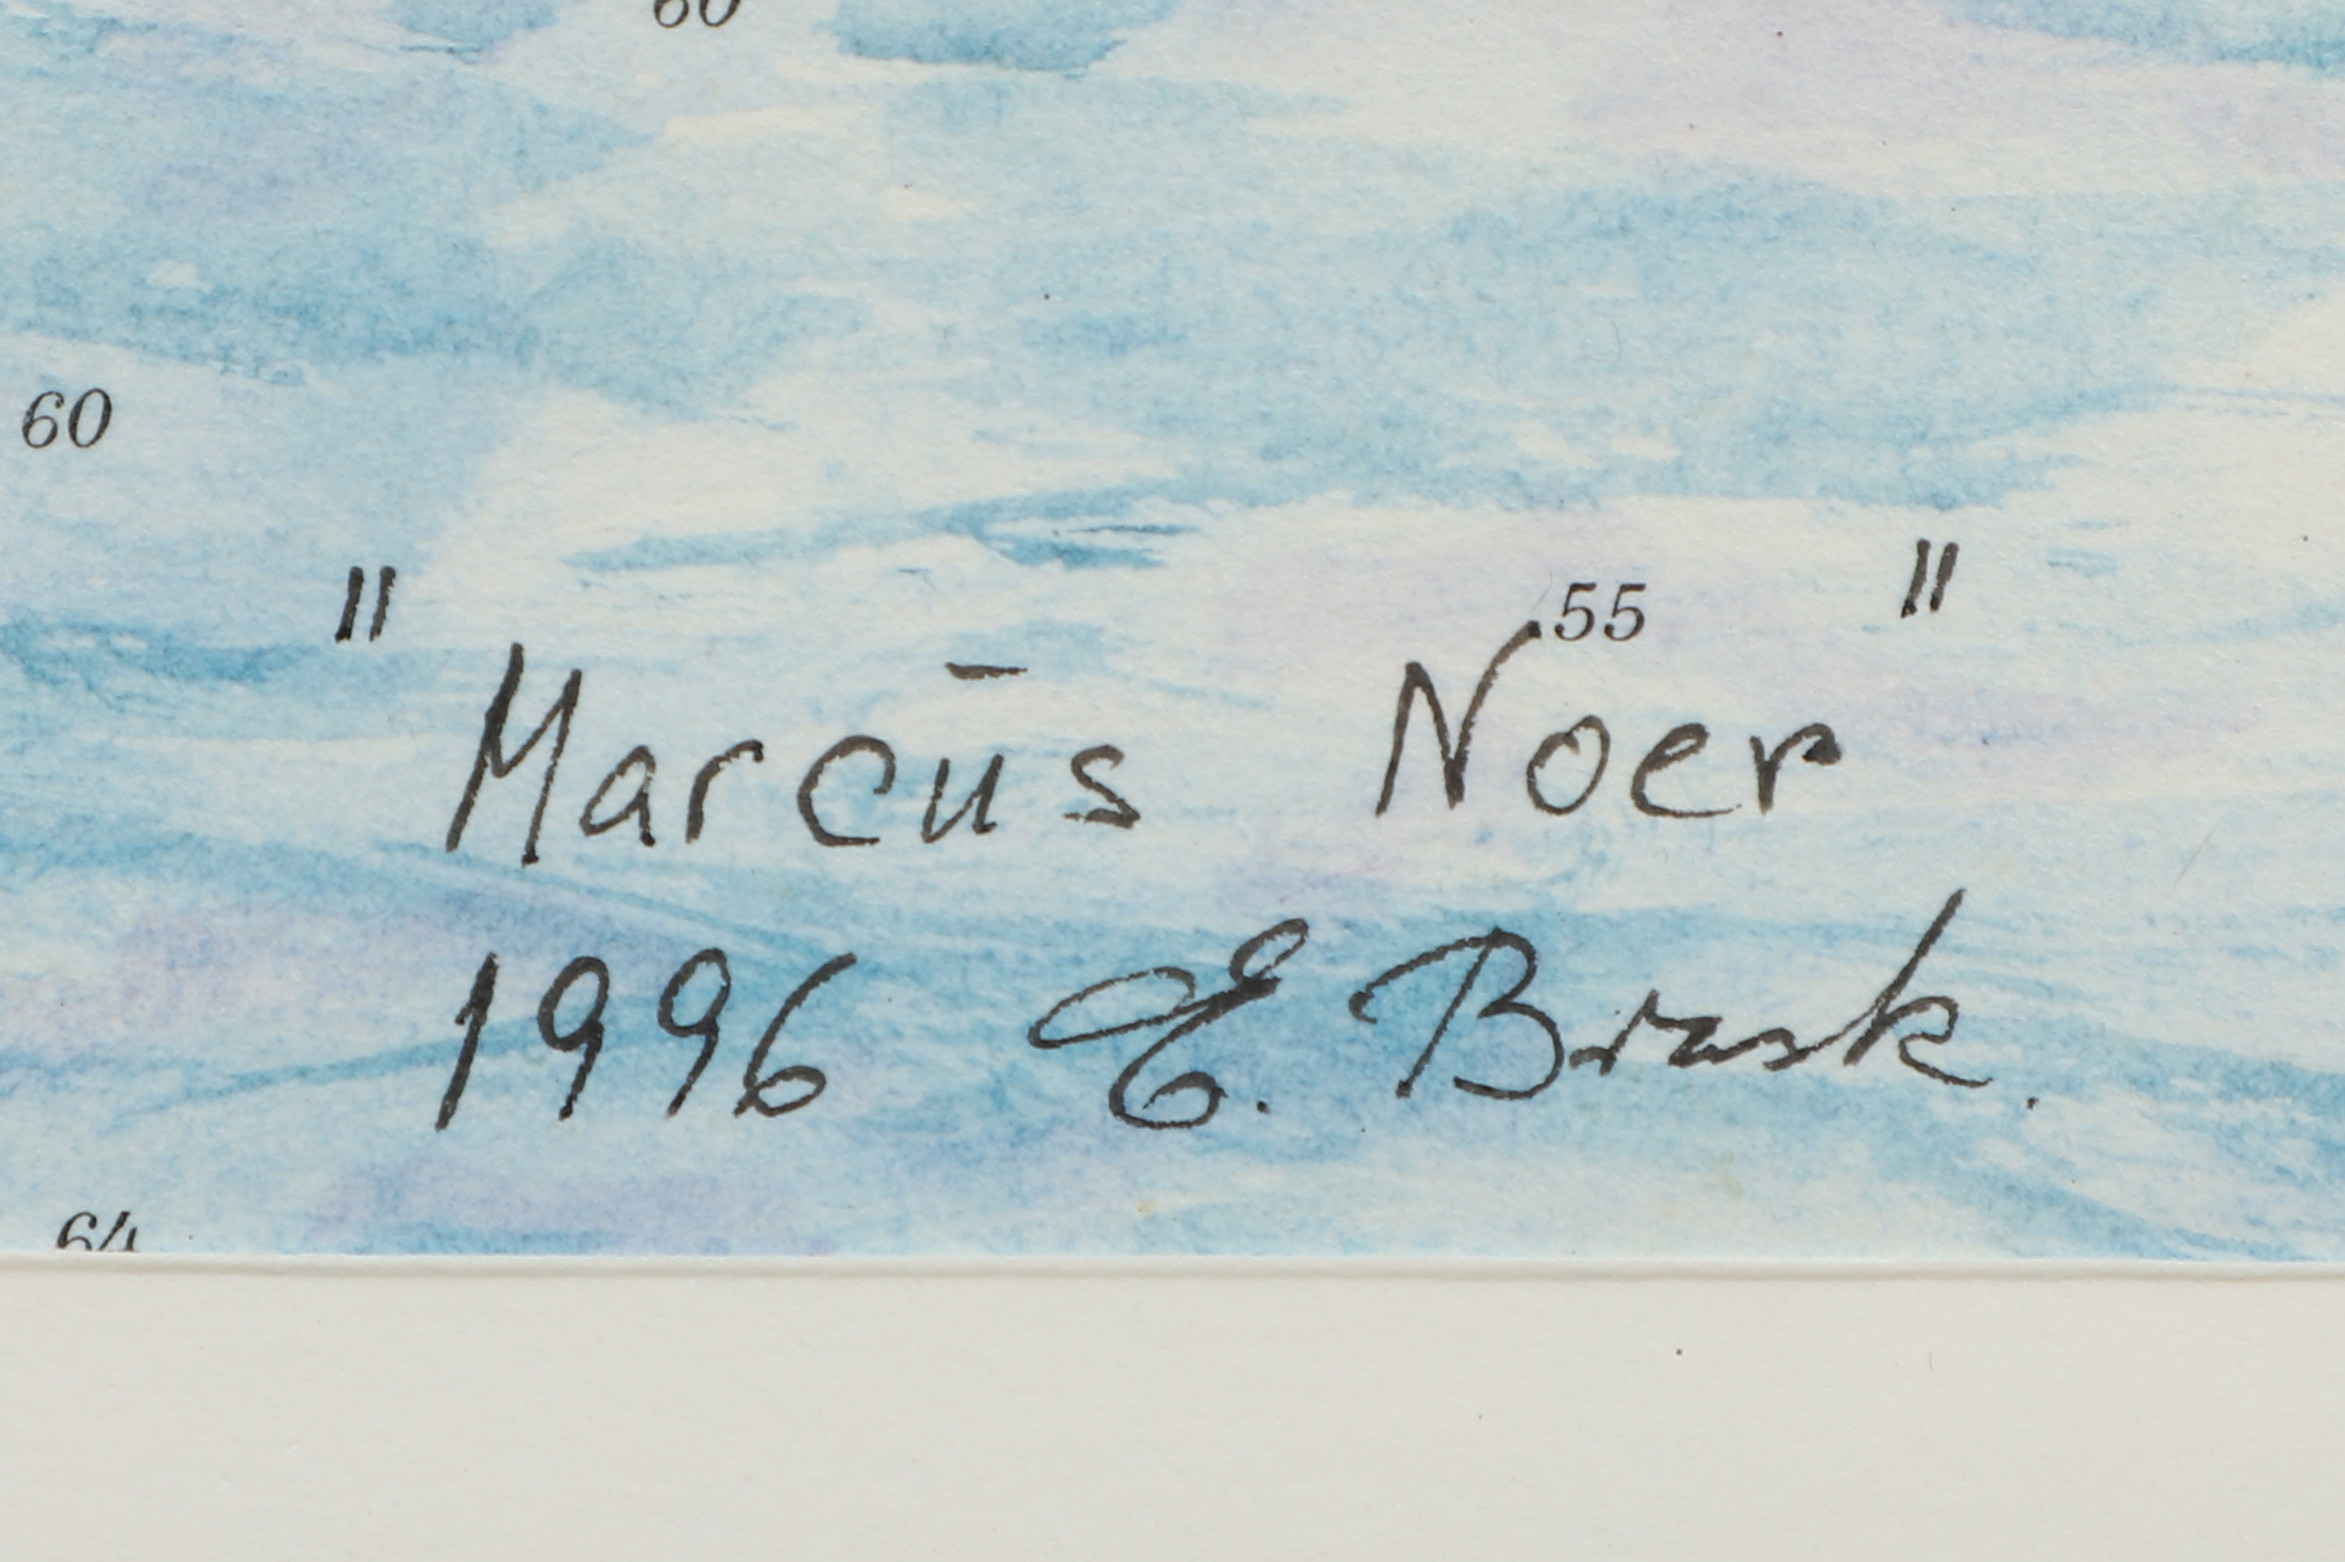 60
60
" Marcūs Noer "
55
1996 E. Brask.
64